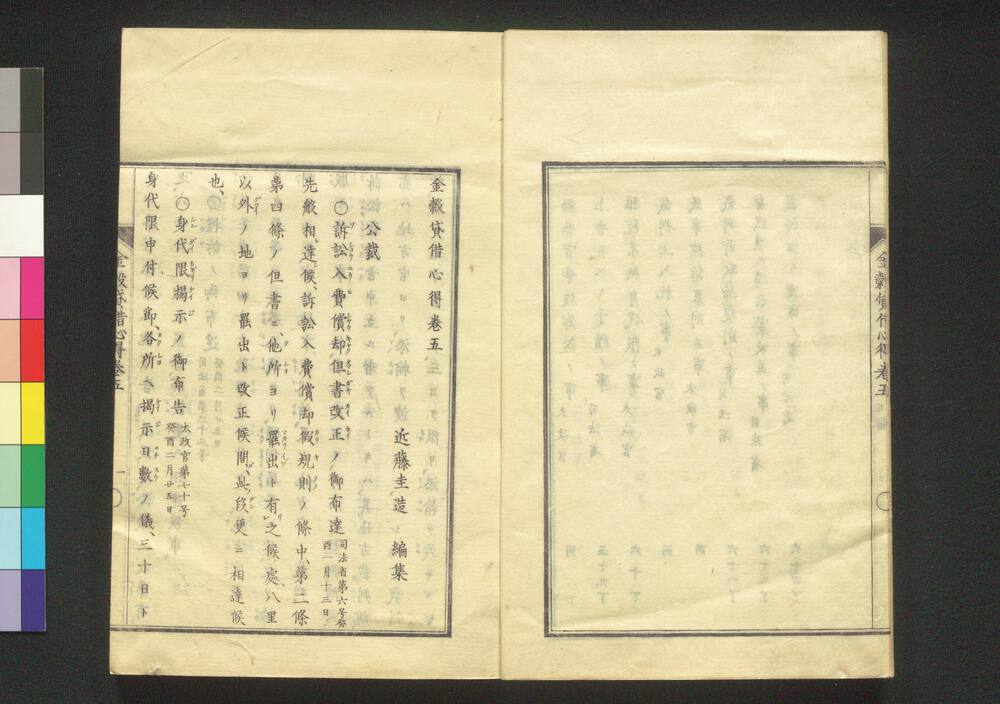 金穀貸借心得巻五
金穀貸借心得巻五
近藤圭造 編集
公裁
〇訴訟入費償却但書改正ノ御布達 司法省第六号癸酉一月十三日
先般相達候、訴訟入費償却假規則ノ條中、第二條
第四條ノ但書ニ、他所ヨリ罷出ト有之候處、八里
以外ノ地ヨリ罷出ト改正候間、此段更ニ相達候
也、
〇身代限揭示ノ御布告 太政官第七十号癸酉二月廿五日
身代限申付候節、各所ヘ揭示日數ノ儀、三十日ト
金穀貸借心得巻五
一